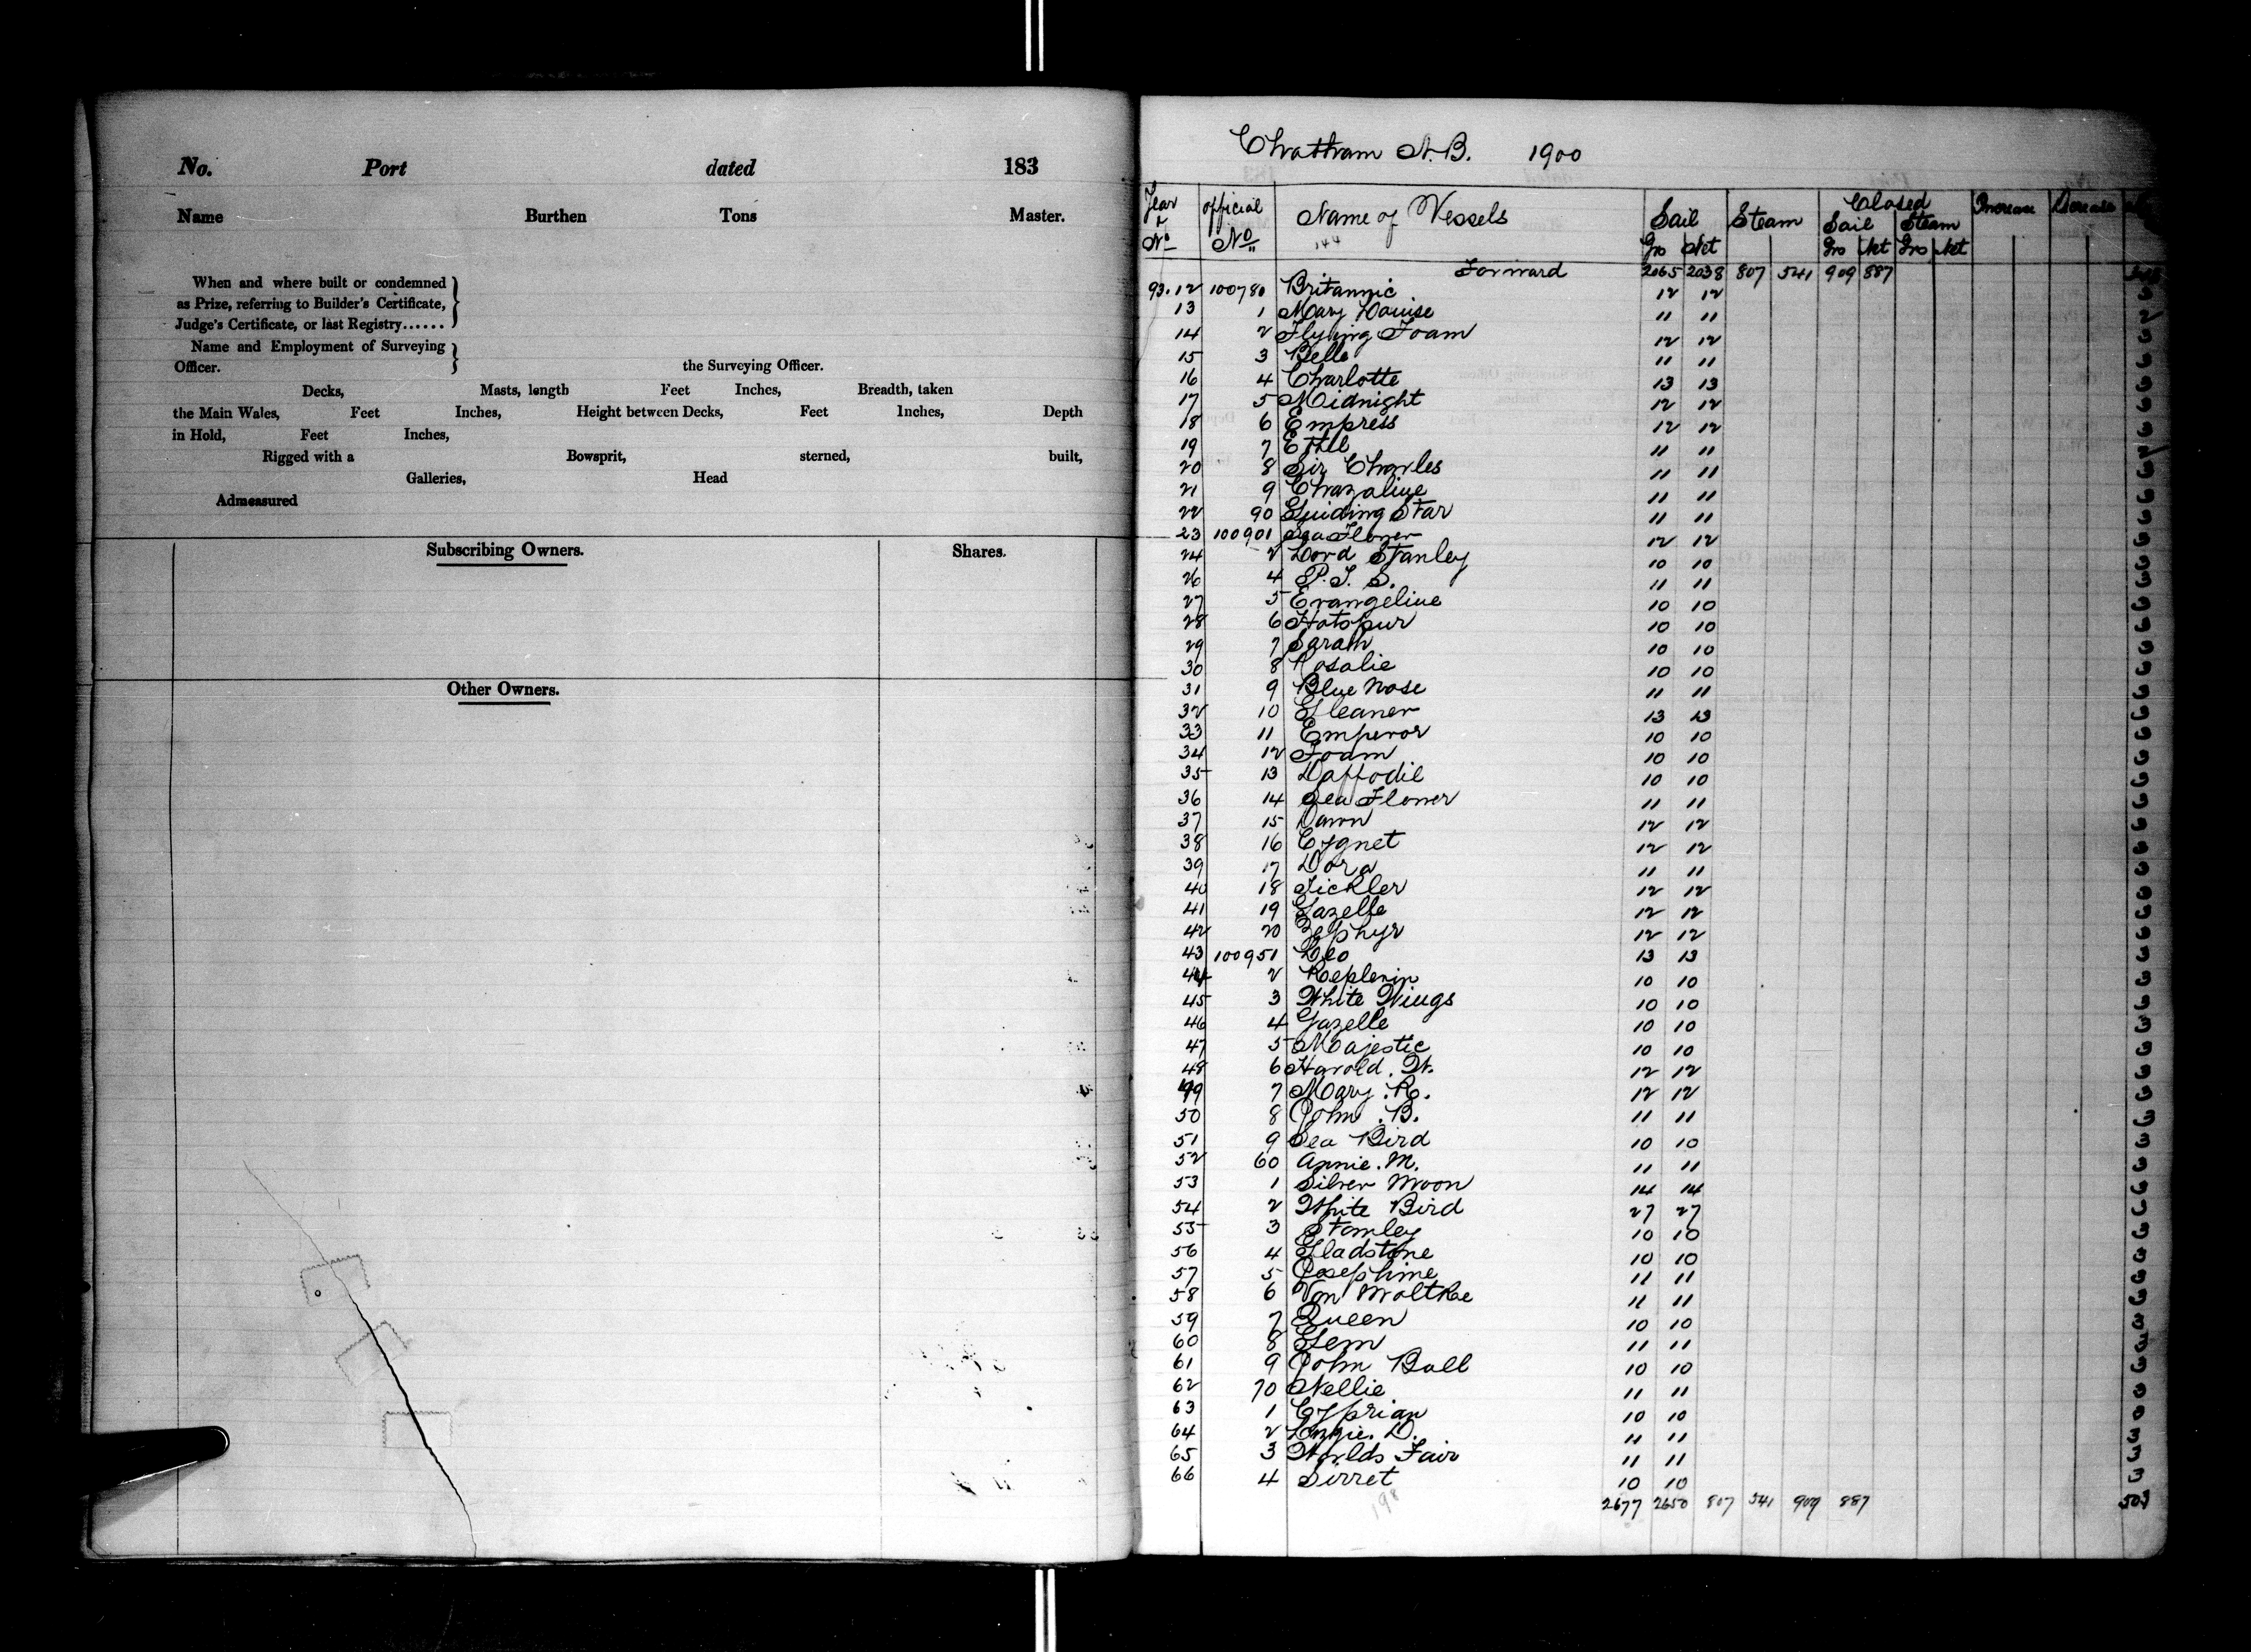 No. Port dated 183
Name Burthen Tons Master.
When and where built or condemned
as Prize, referring to Builder's Certificate,
Judge's Certificate, or last Registry......
Name and Employment of Surveying
Officer. the Surveying Officer.
Decks, Masts, length Feet Inches, Breadth, taken
the Main Wales, Feet Inches, Height between Decks, Feet Inches, Depth
in Hold, Feet Inches,
Rigged with a Bowsprit, sterned, built,
Galleries, Head
Admeasured
Subscribing Owners. Shares.
Other Owners.
Chatham N.B. 1900
Year & No official No Name of Vessels Sail Steam Closed Sail Steam Increase Decrease
144 Gro Net Gro Net Gro Net
Forward 2065 2038 807 541 909 887
93.12 100780 Britannic 12 12
13 1 Mary Louise 11 11
14 2 Flying Foam 12 12
15 3 Belle 11 11
16 4 Charlotte 13 13
17 5 Midnight 12 12
18 6 Empress 12 12
19 7 Ethel 11 11
20 8 Sir Charles 11 11
21 9 Chazaline 11 11
22 90 Guiding Star 11 11
23 100901 Sea Flower 12 12
24 2 Lord Stanley 10 10
26 4 P.J. S. 11 11
27 5 Evangeline 10 10
28 6 Hotspur 10 10
29 7 Sarah 10 10
30 8 Rosalie 10 10
31 9 Blue Nose 11 11
32 10 Gleaner 13 13
33 11 Emperor 10 10
34 12 Foam 10 10
35 13 Daffodil 10 10
36 14 Sea Flower 11 11
37 15 Dawn 12 12
38 16 Cygnet 12 12
39 17 Dora 11 11
40 18 Tickler 12 12
41 19 Gazelle 12 12
42 20 Zephyr 12 12
43 100951 Leo 13 13
44 2 Keplerin 10 10
45 3 White Wings 10 10
46 4 Gazelle 10 10
47 5 Majestic 10 10
48 6 Harold. W. 12 12
49 7 Mary. R. 12 12
50 8 John. B. 11 11
51 9 Sea Bird 10 10
52 60 Annie. M. 11 11
53 1 Silver Moon 14 14
54 2 White Bird 27 27
55 3 Stanley 10 10
56 4 Gladstone 10 10
57 5 Josephine 11 11
58 6 Von Moltke 11 11
59 7 Queen 10 10
60 8 Gem 11 11
61 9 John Bull 10 10
62 70 Nellie 11 11
63 1 Cyprian 10 10
64 2 Lizzie. D. 11 11
65 3 Worlds Fair 11 11
66 4 Sirret 10 10
198
2677 2650 807 541 909 887 503